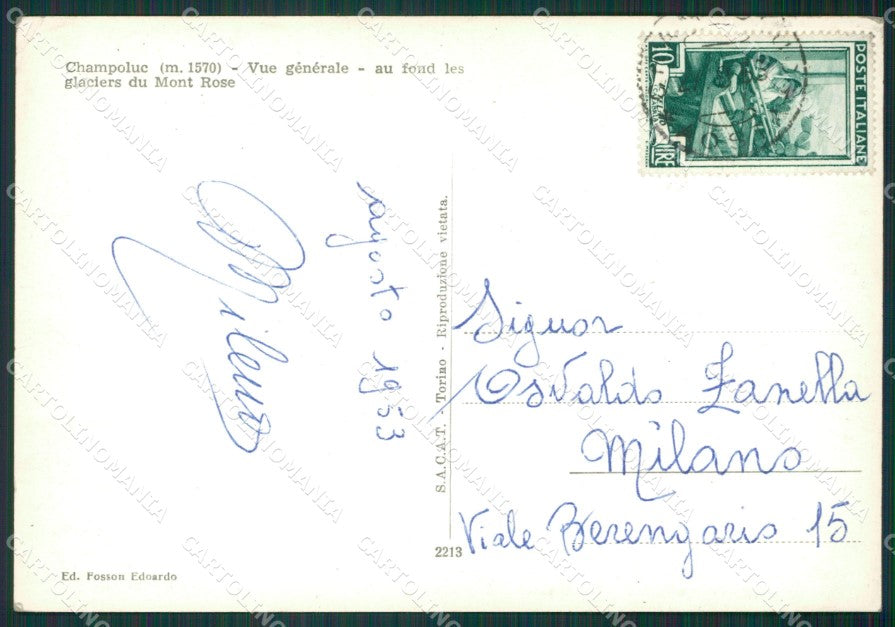 Champoluc (m. 1570) - Vue générale - au fond les
glaciers du Mont Rose
10
LIRE
POSTE ITALIANE
agosto 1953
S.A.C.A.T. - Torino - Riproduzione vietata.
Signor
Osvaldo Zanella
Milano
Viale Berengario 15
2213
Ed. Fosson Edoardo
CARTOLINOMANIA